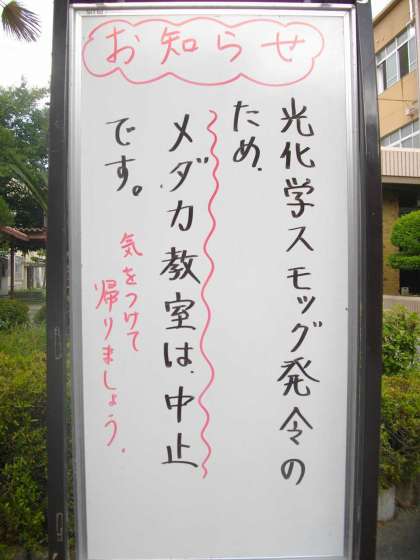 お知らせ
光化学スモッグ発令の
ため、
メダカ教室は、中止
です。
気をつけて
帰りましょう。